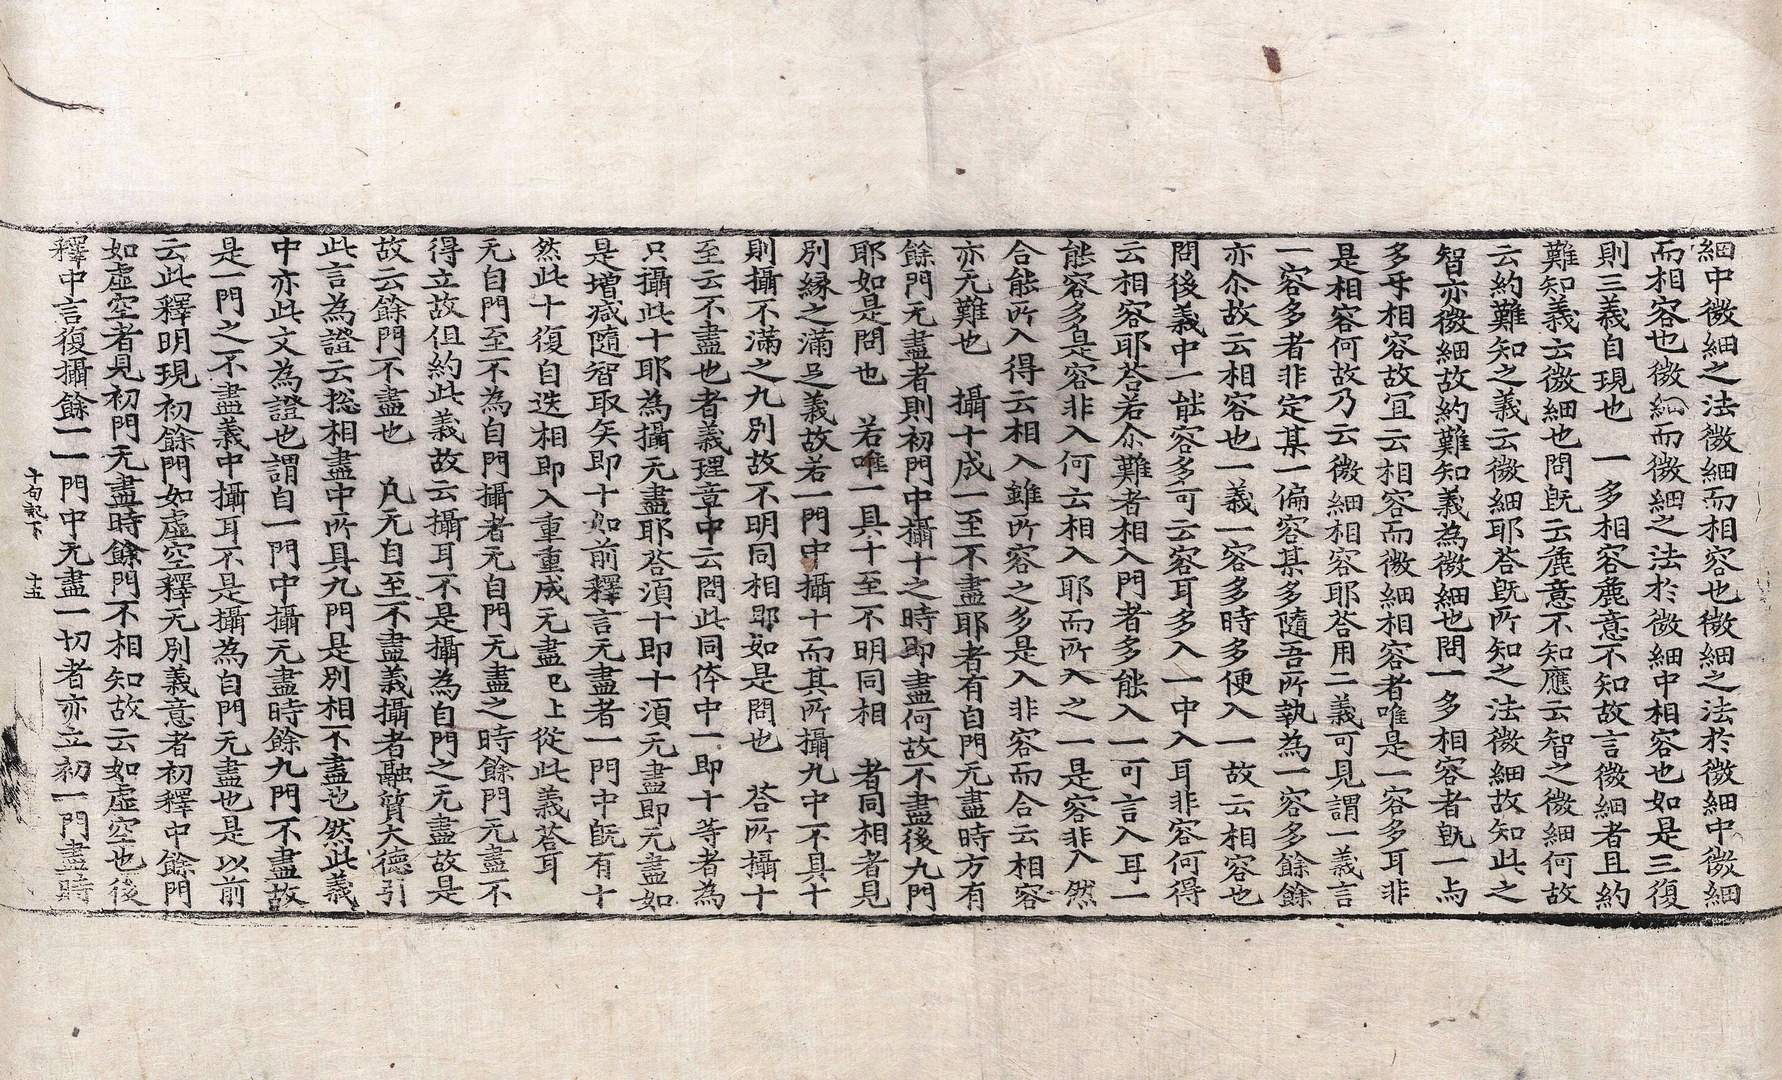 細中微細之法微細而相容也微細之法於微細中微細
而相容也微細而微細之法於微細中相容也如是三復
則三義自現也　一多相容麁意不知故言微細者且約
難知義云微細也問既云麁意不知應云智之微細何故
云約難知之義云微細耶荅既所知之法微細故知此之
智亦微細故約難知義為微細也問一多相容者既一与
多㸦相容故冝云相容而微細相容者唯是一容多耳非
是相容何故乃云微細相容耶荅用二義可見謂一義言
一容多者非定某一偏容某多隨吾所執為一容多餘餘
亦尒故云相容也一義一容多時多便入一故云相容也
問後義中一能容多可云容耳多入一中入耳非容何得
云相容耶荅若尒難者相入門者多能入一可言入耳一
能容多是容非入何云相入耶而所入之一是容非入然
合能所入得云相入雖所容之多是入非容而合云相容
亦无難也　攝十成一至不盡耶者有自門无盡時方有
餘門无盡者則初門中攝十之時即盡何故不盡後九門
耶如是問也　若唯一具十至不明同相　者同相者見
別縁之滿足義故若一門中攝十而其所攝九中不具十
則攝不滿之九別故不明同相耶如是問也　荅所攝十
至云不盡也者義理章中云問此同体中一即十等者為
只攝此十耶為攝无盡耶荅湏十即十湏无盡即无盡如
是增减隨智取矣即十如前釋言无盡者一門中既有十
然此十復自迭相即入重重成无盡已上從此義荅耳
无自門至不為自門攝者无自門无盡之時餘門无盡不
得立故但約此義故云攝耳不是攝為自門之无盡故是
故云餘門不盡也　凡无自至不盡義攝者融質大德引
此言為證云捴相盡中所具九門是別相不盡也然此義
中亦此文為證也謂自一門中攝无盡時餘九門不盡故
是一門之不盡義中攝耳不是攝為自門无盡也是以前
云此釋明現初餘門如虛空釋无別義意者初釋中餘門
如虛空者見初門无盡時餘門不相知故云如虛空也後
釋中言復攝餘一一門中无盡一切者亦立初一門盡時
十句記下　十五